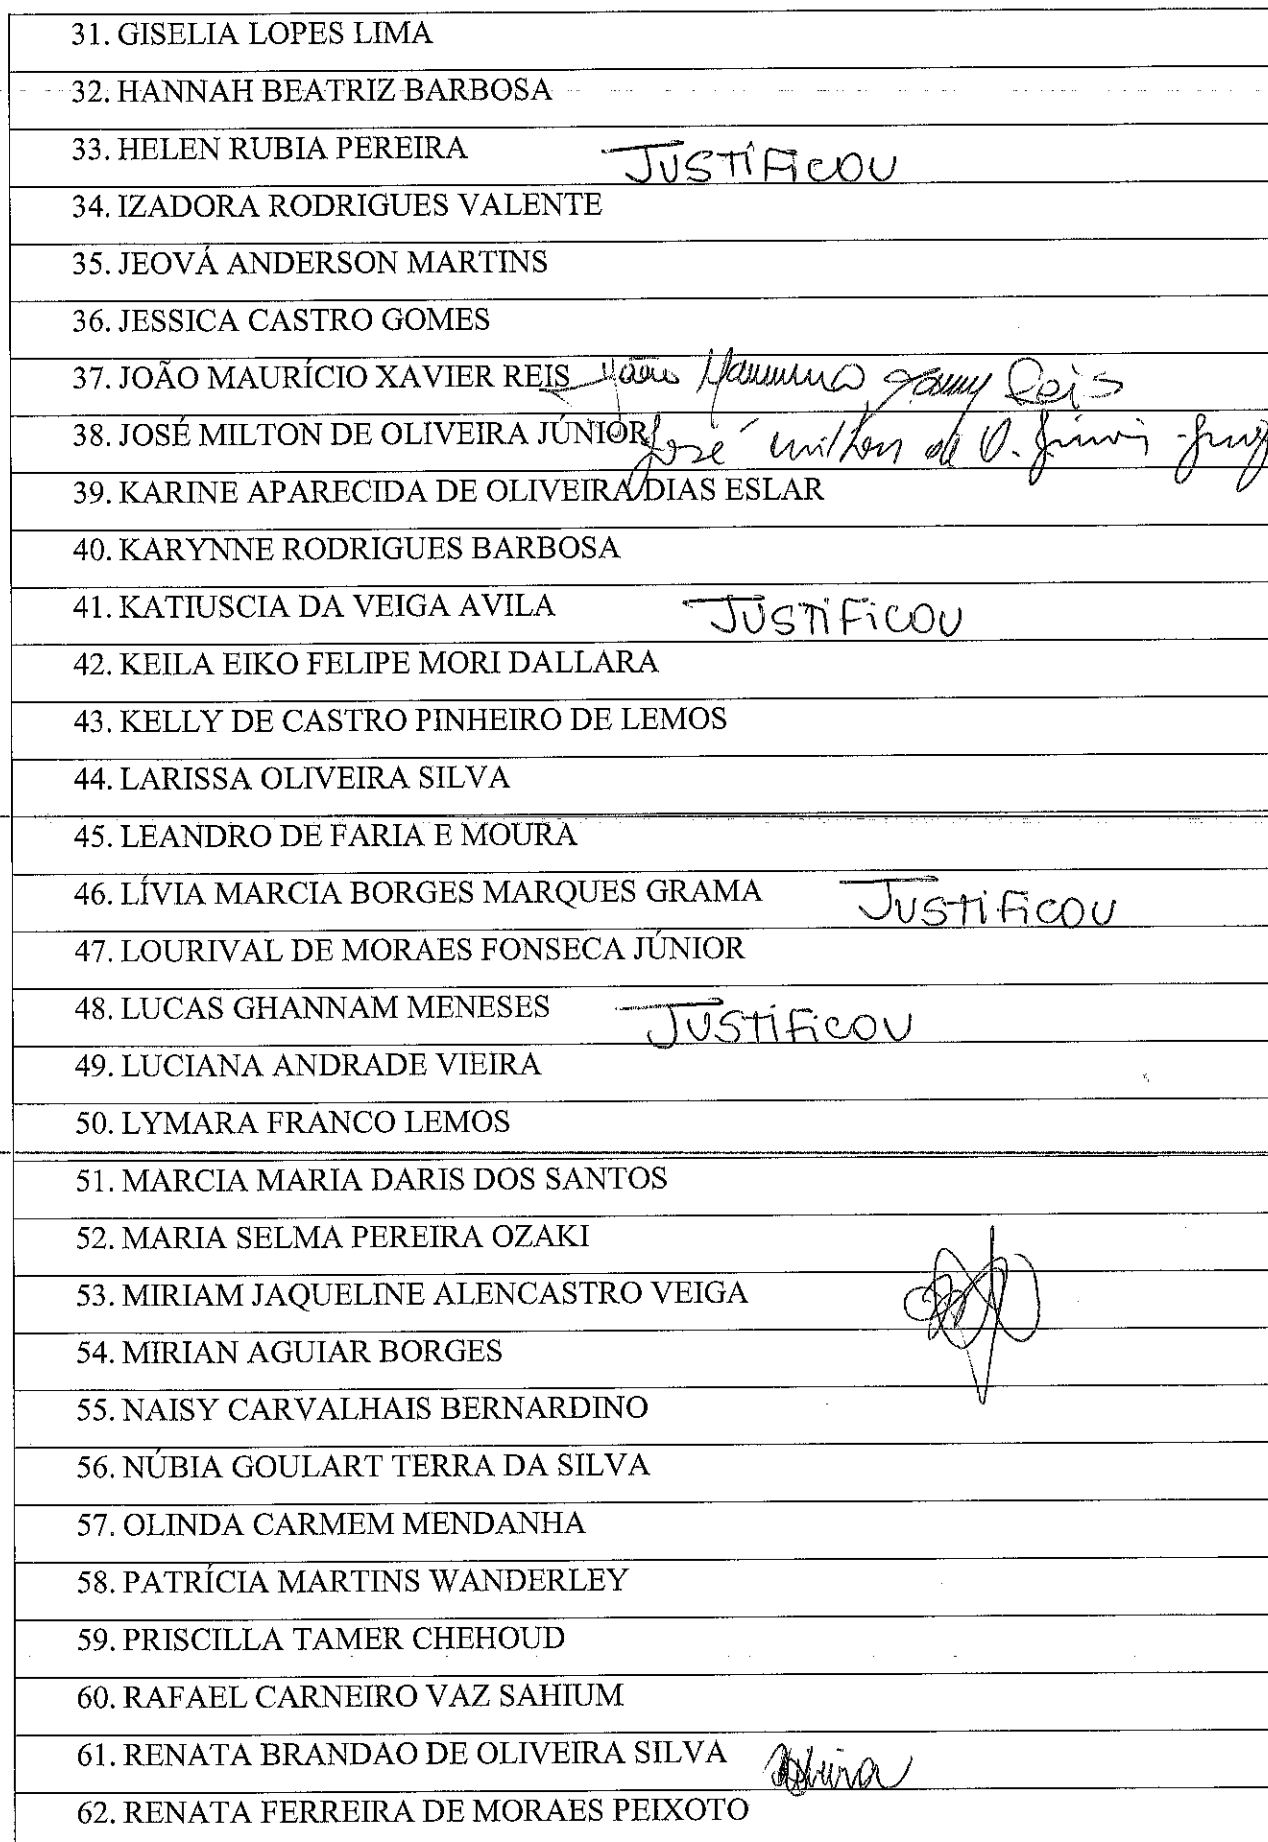 31. GISELIA LOPES LIMA
32. HANNAH BEATRIZ BARBOSA
33. HELEN RUBIA PEREIRA JUSTIFICOU
34. IZADORA RODRIGUES VALENTE
35. JEOVÁ ANDERSON MARTINS
36. JESSICA CASTRO GOMES
37. JOÃO MAURÍCIO XAVIER REIS João Reis
38. JOSÉ MILTON DE OLIVEIRA JÚNIOR José Milton de O. Júnior
39. KARINE APARECIDA DE OLIVEIRA DIAS ESLAR
40. KARYNNE RODRIGUES BARBOSA
41. KATIUSCIA DA VEIGA AVILA JUSTIFICOU
42. KEILA EIKO FELIPE MORI DALLARA
43. KELLY DE CASTRO PINHEIRO DE LEMOS
44. LARISSA OLIVEIRA SILVA
45. LEANDRO DE FARIA E MOURA
46. LÍVIA MARCIA BORGES MARQUES GRAMA JUSTIFICOU
47. LOURIVAL DE MORAES FONSECA JÚNIOR
48. LUCAS GHANNAM MENESES JUSTIFICOU
49. LUCIANA ANDRADE VIEIRA
50. LYMARA FRANCO LEMOS
51. MARCIA MARIA DARIS DOS SANTOS
52. MARIA SELMA PEREIRA OZAKI
53. MIRIAM JAQUELINE ALENCASTRO VEIGA
54. MIRIAN AGUIAR BORGES
55. NAISY CARVALHAIS BERNARDINO
56. NÚBIA GOULART TERRA DA SILVA
57. OLINDA CARMEM MENDANHA
58. PATRÍCIA MARTINS WANDERLEY
59. PRISCILLA TAMER CHEHOUD
60. RAFAEL CARNEIRO VAZ SAHIUM
61. RENATA BRANDAO DE OLIVEIRA SILVA
62. RENATA FERREIRA DE MORAES PEIXOTO